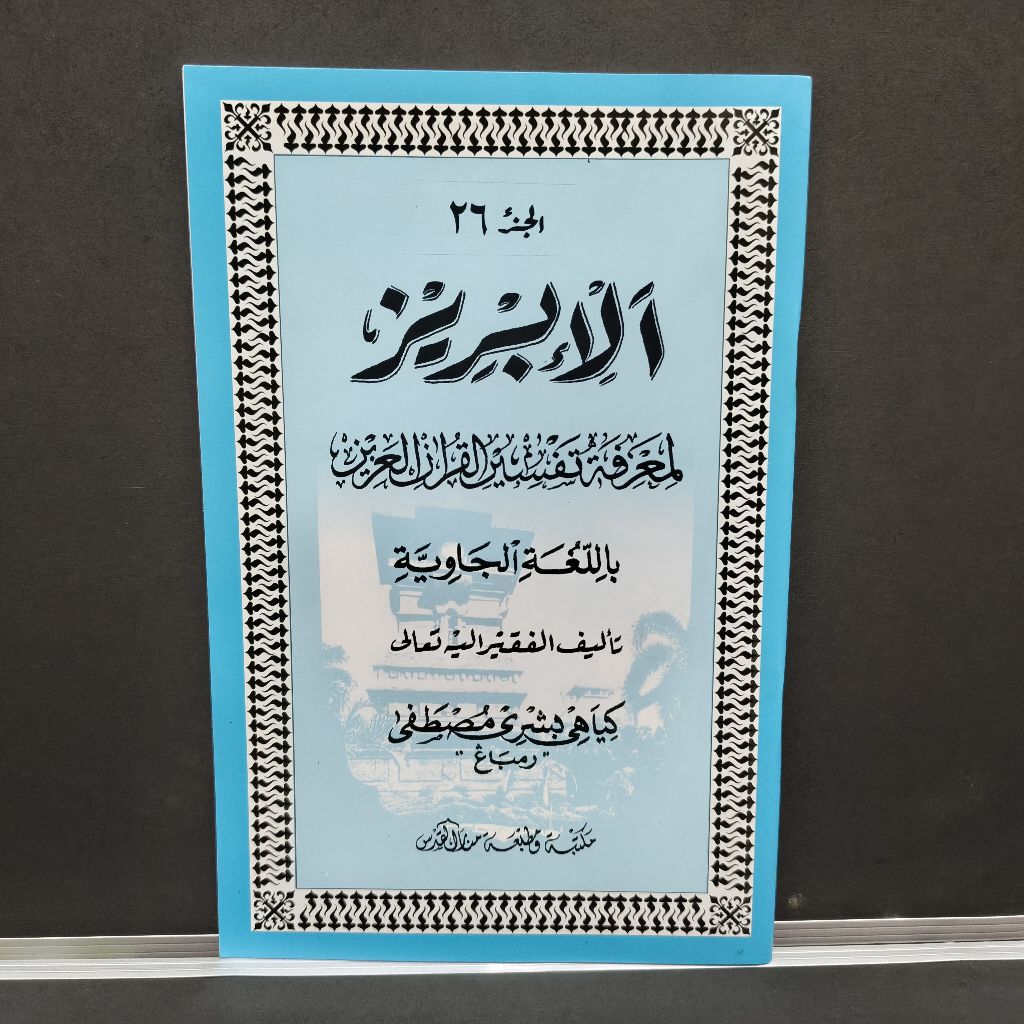 الجزء ٢٦
اَلْاِبْرِيْز
لِمَعْرِفَةِ تَفْسِيْرِ الْقُرْاٰنِ الْعَزِيْزِ
بِاللُّغَةِ الْجَاوِيَّةِ
تأليف الفقير اليه تعالى
كِيَاهِيْ بِشْرِيْ مُصْطَفٰى
"رمباڠ"
مكتبة ومطبعة منارا القدس